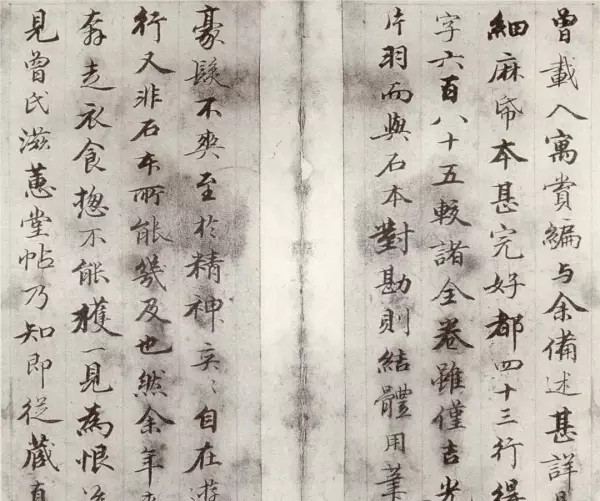 曾載入寓賞編与余備述甚詳
細麻帋本甚完好都四十三行得
字六百八十五較諸全卷雖僅吉光
片羽而與石本對勘則結體用筆
豪髮不爽至於精神奕〻自在遊
行又非石本所能幾及也然余年來
奔走衣食揔不能獲一見為恨
見曾氏滋蕙堂帖乃知即從蔵真